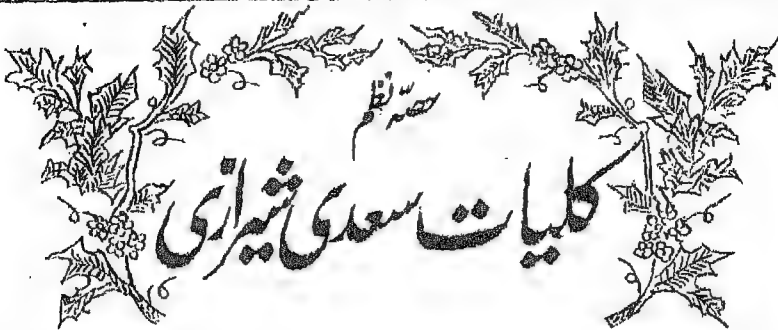 حصّہ نظم
کلیات سعدی شیرازی